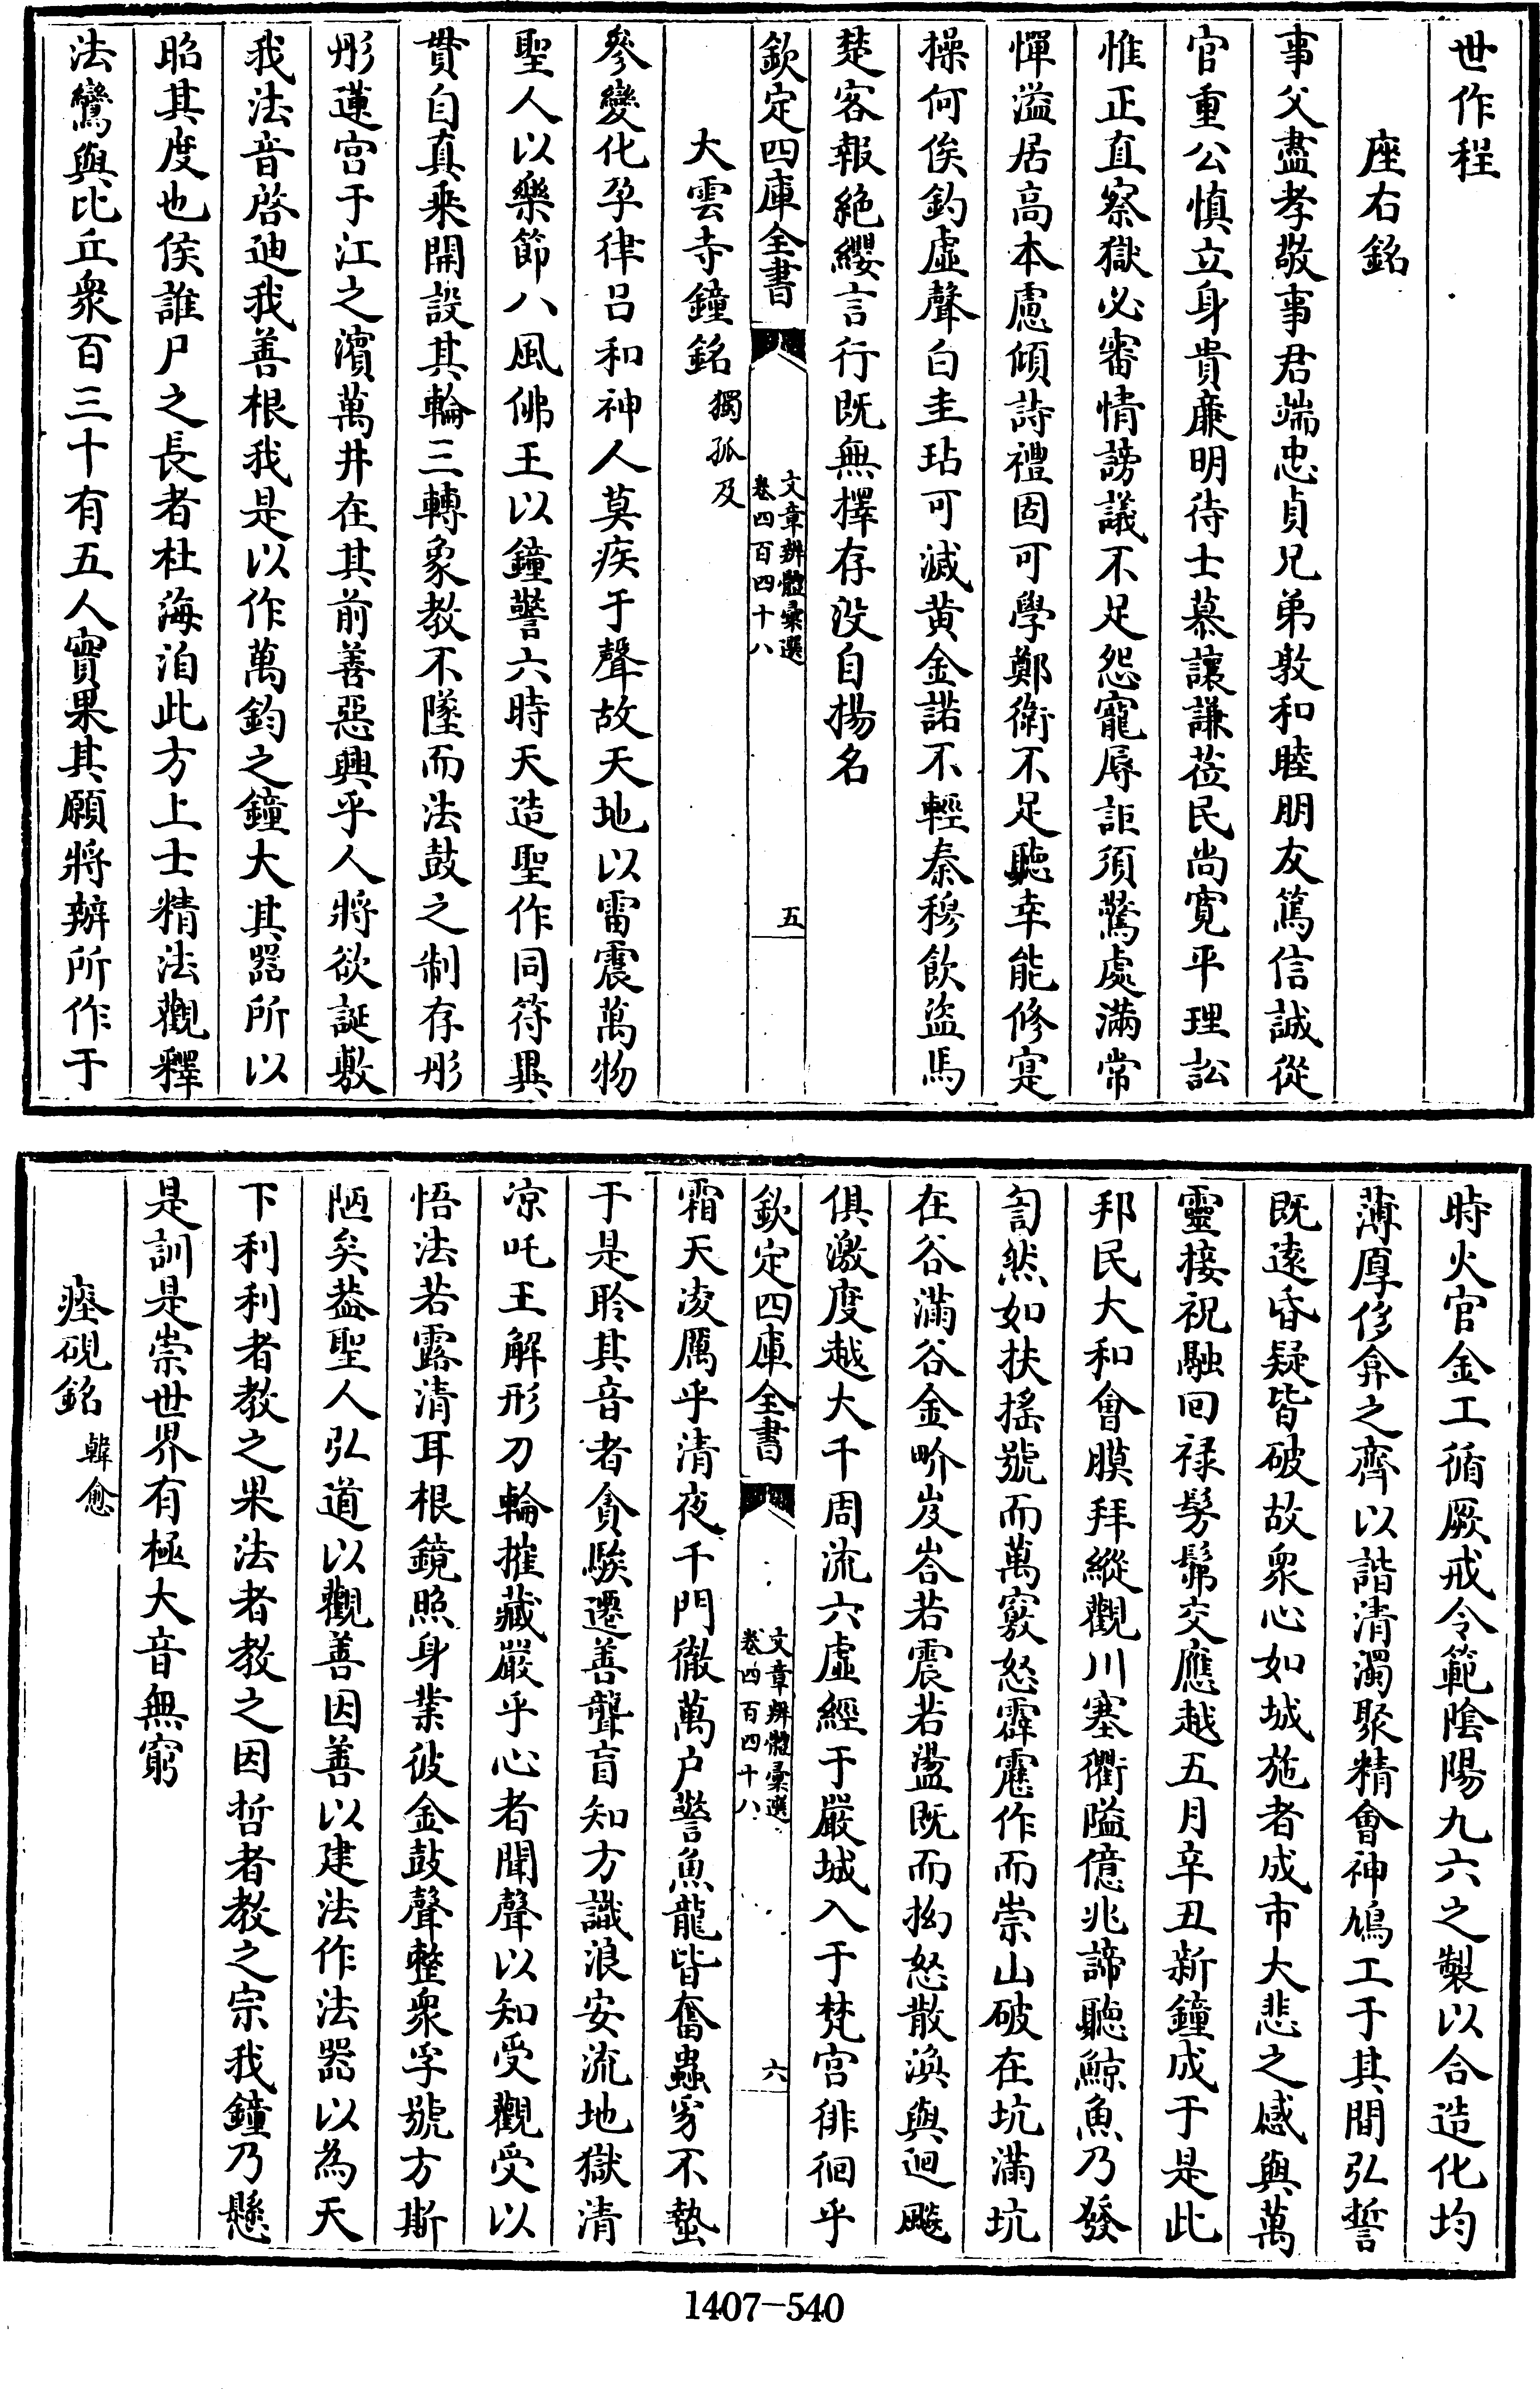 世作程
座右銘
事父盡孝敬事君端忠貞兄弟敦和睦朋友篤信誠從
官重公慎立身貴廉明待士慕謙讓莅民尚寛平理訟
惟正直察獄必審情謗議不足怨寵辱詎須驚處滿常
憚溢居高本慮傾詩禮固可學鄭衛不足聽幸能修寔
操何俟釣虚聲白圭玷可滅黄金諾不輕秦穆飲盜馬
楚客報絶纓言行既無擇存没自揚名
欽定四庫全書
文章辨體彚選
卷四百四十八
五
大雲寺鐘銘 獨孤及
參變化孕律吕和神人莫疾于聲故天地以雷震萬物
聖人以樂節八風佛王以鐘警六時天造聖作同符異
貫自真乘開設其輪三轉象教不墜而法鼓之制存彤
彤蓮宫于江之濱萬井在其前善惡興乎人將欲誕敷
我法音啓迪我善根我是以作萬鈞之鐘大其器所以
昭其度也侯誰尸之長者杜海洎此方上士精法觀釋
法鸞與比丘衆百三十有五人實果其願將辦所作于
時火官金工循厥戒令範陰陽九六之製以合造化均
薄厚侈弇之齊以諧清濁聚精會神鳩工于其間弘誓
既遠昏疑皆破故衆心如城施者成市大悲之感與萬
靈接祝融回禄髣髴交應越五月辛丑新鐘成于是此
邦民大和會膜拜縱觀川塞衢隘億兆諦聽鯨魚乃發
訇然如扶揺號而萬竅怒霹靂作而崇山破在坑滿坑
在谷滿谷金昤岌峇若震若盪既而拗怒散渙與迴飈
俱激度越大千周流六虚經于嚴城入于梵宫徘徊乎
欽定四庫全書
文章辨體彚選
卷四百四十八
六
霜天凌厲乎清夜千門徹萬户警魚龍皆奮蟲豸不蟄
于是聆其音者貪駭遷善聾盲知方識浪安流地獄清
凉吒王解形刀輪摧藏嚴乎心者聞聲以知受觀受以
悟法若露清耳根鏡照身業彼金鼓聲整衆孚號方斯
陋矣葢聖人弘道以觀善因善以建法作法器以為天
下利利者教之果法者教之因哲者教之宗我鐘乃懸
是訓是崇世界有極大音無窮
瘞硯銘 韓愈
1407-540